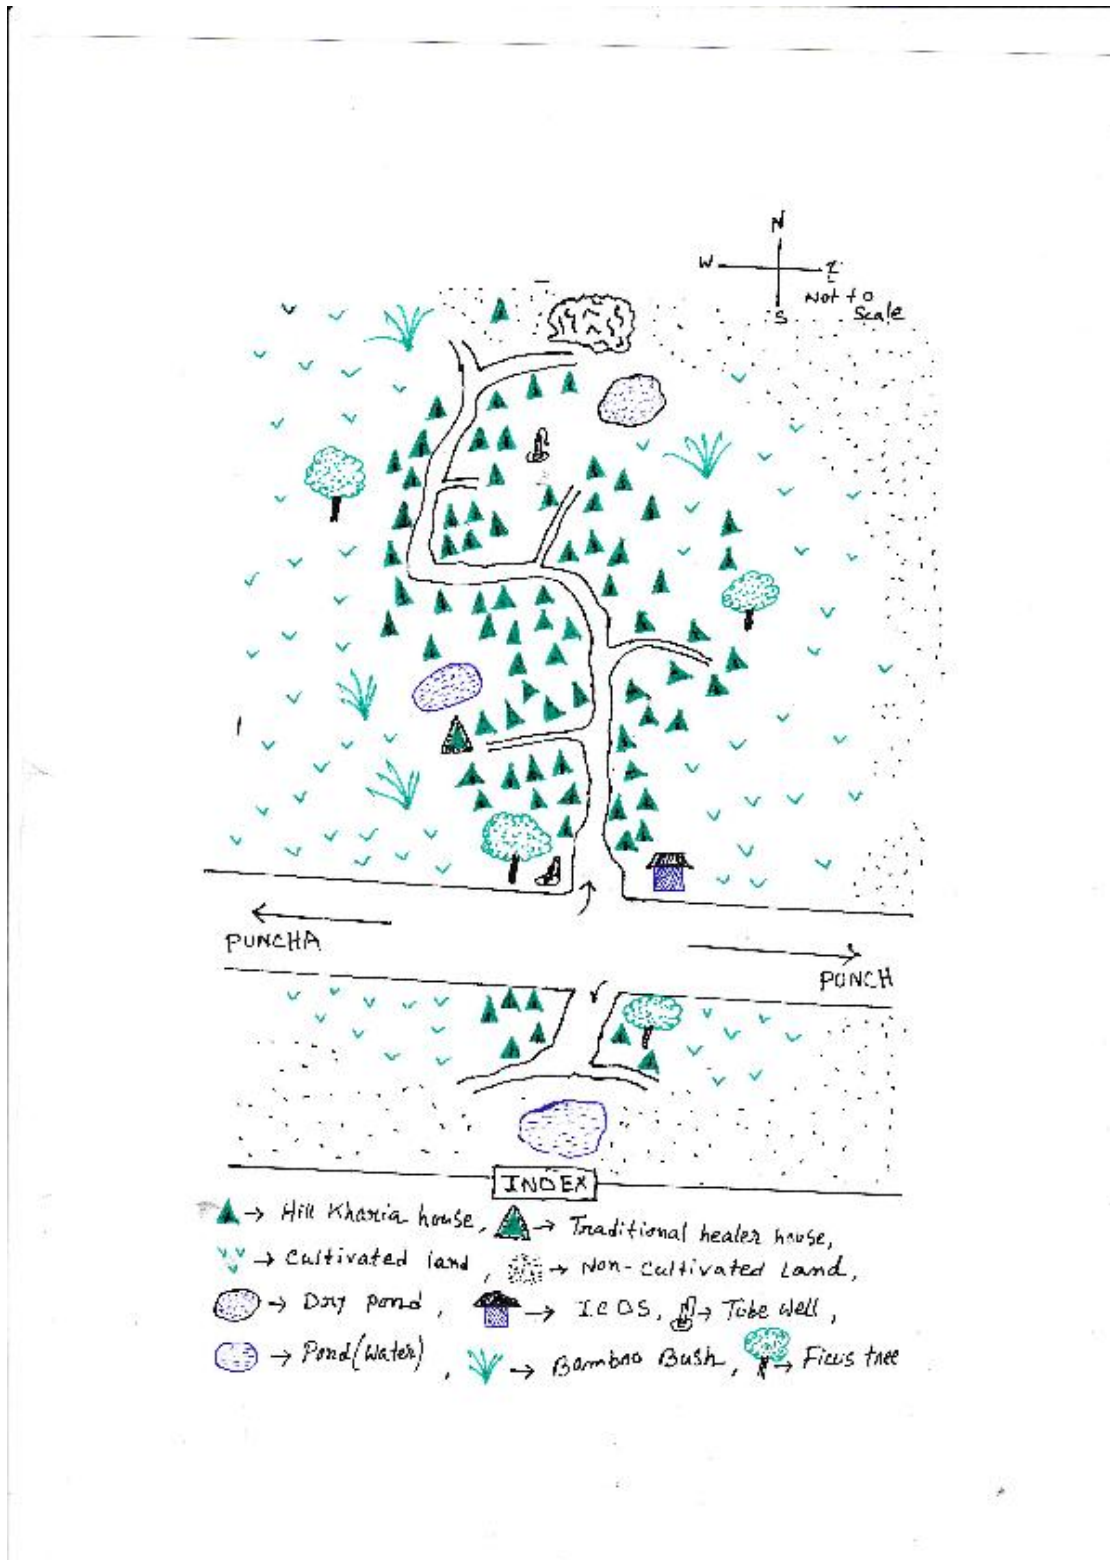 N
W
S
Not to
Scale
PUNCHA
PONCH
INDEX
→ Hill Kharia house, → Traditional healer house,
→ Cultivated land, → Non-Cultivated Land,
→ Dry pond, → I.C.D.S, → Tube well,
→ Pond (Water), → Bamboo Bush, → Ficus tree